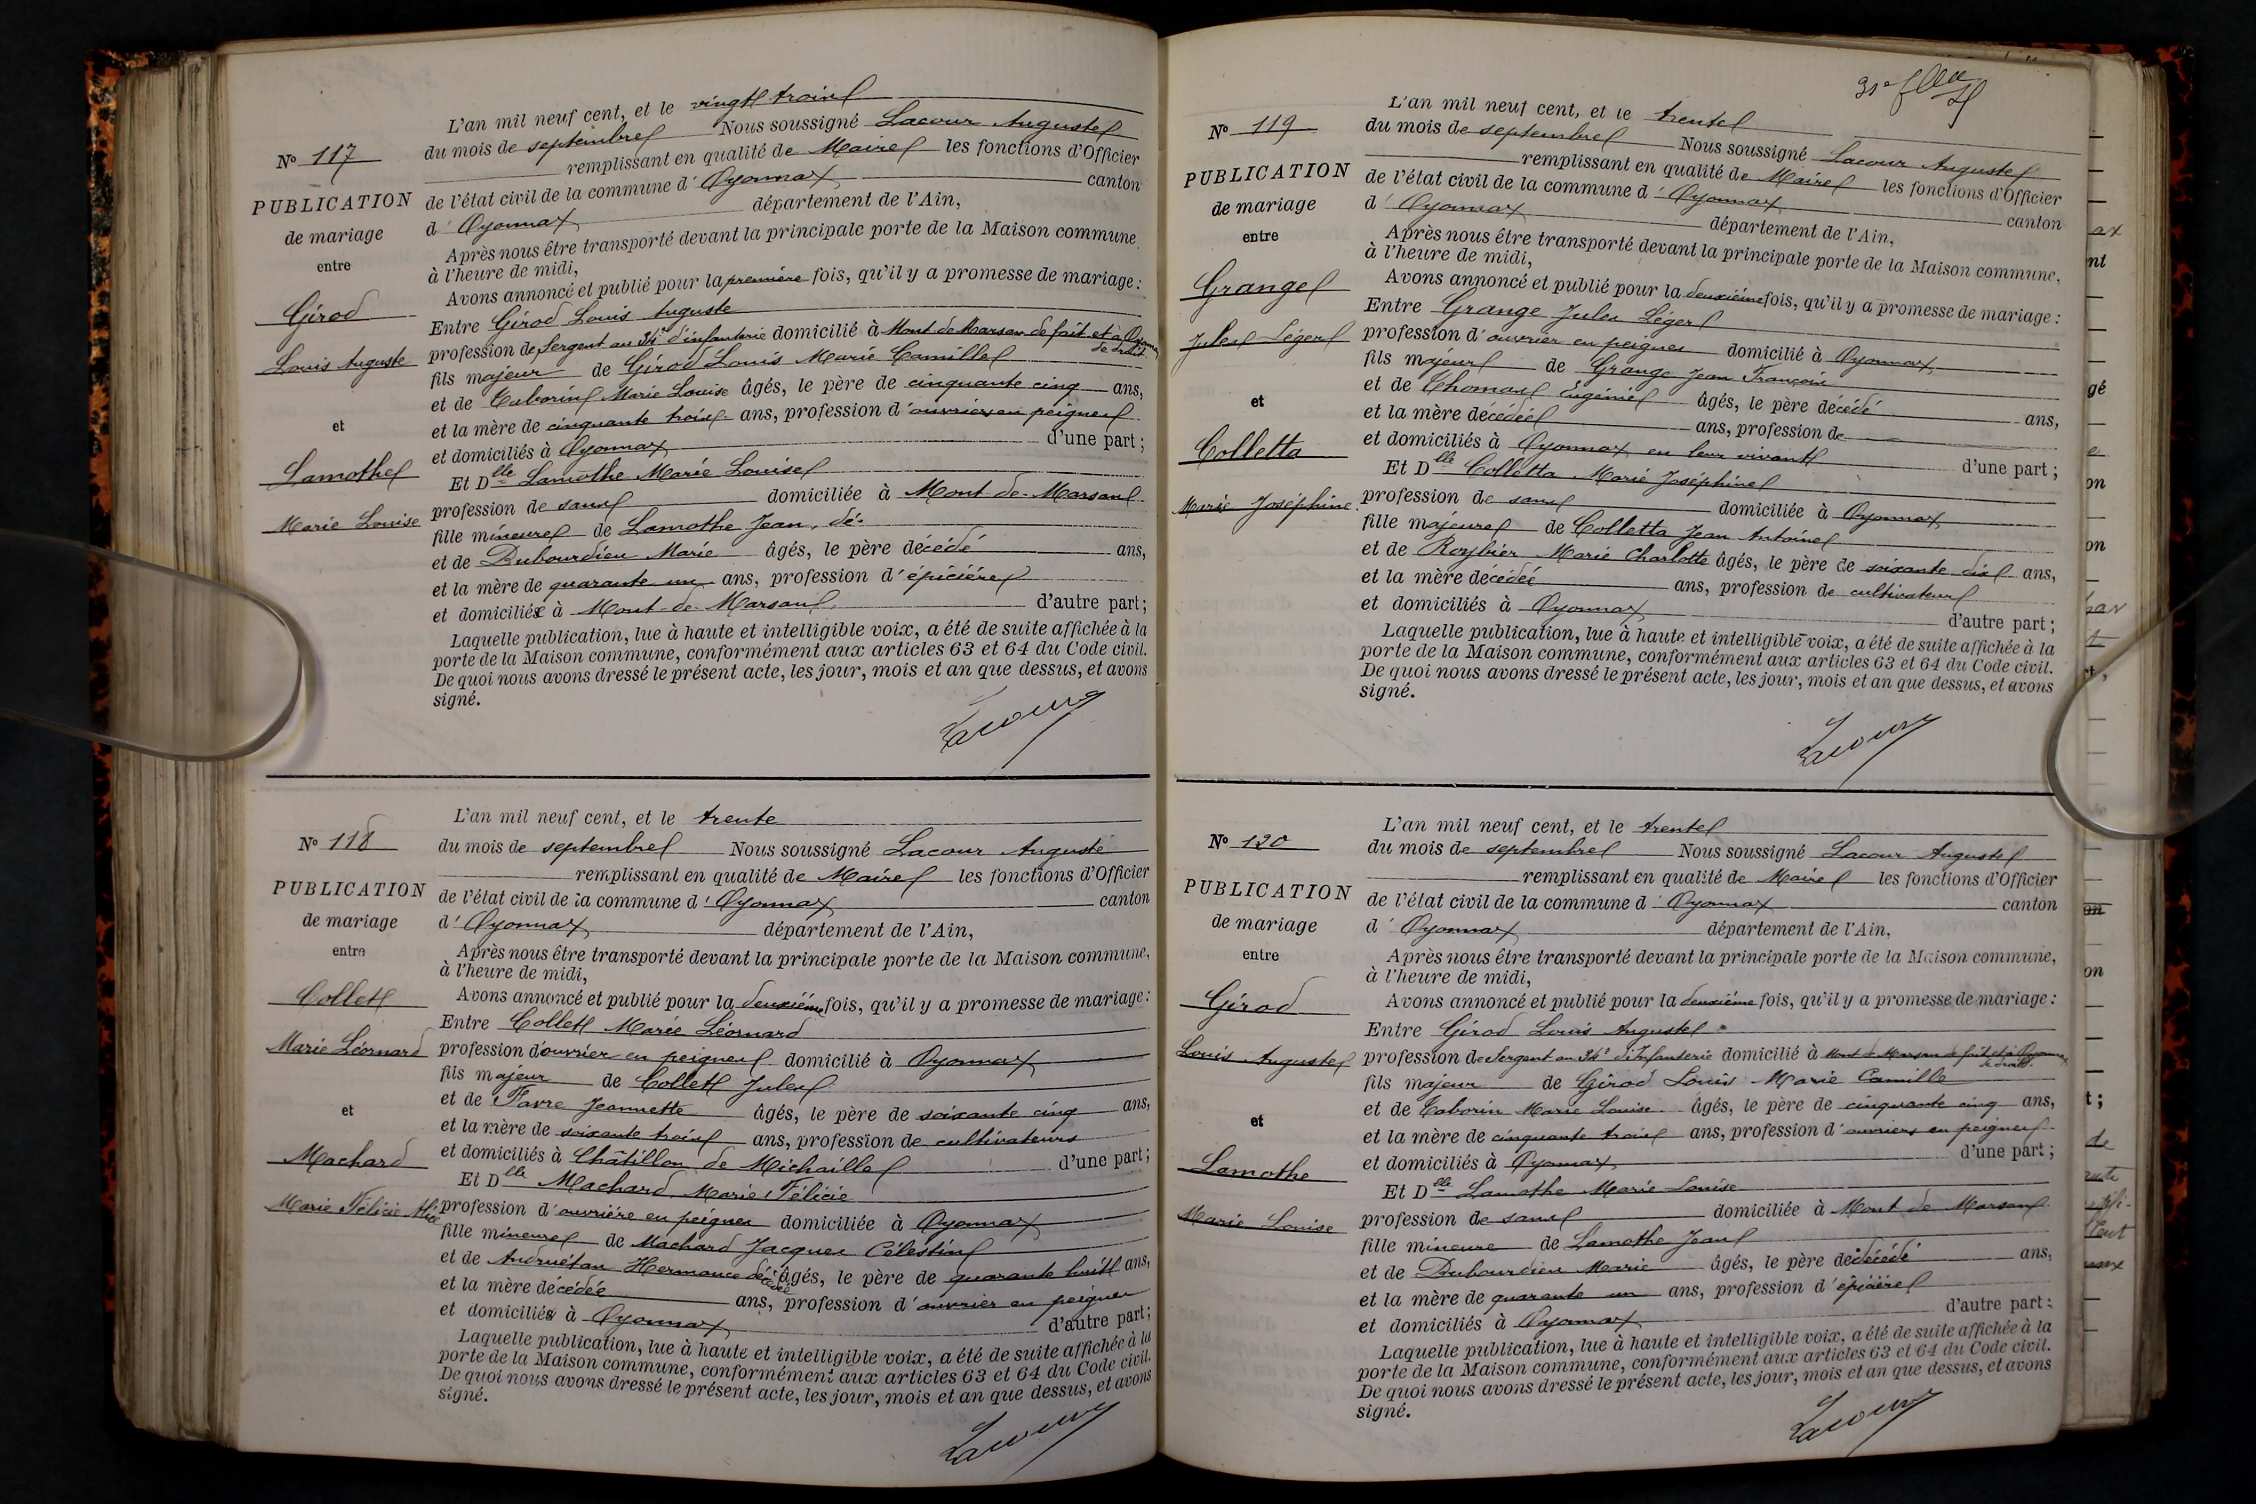 L'an mil neuf cent, et le vingt trois
N° 117
du mois de septembre Nous soussigné Lacour Auguste
remplissant en qualité de Maire les fonctions d'Officier
PUBLICATION
de mariage
entre
Girod
Louis Auguste
et
Lamothe
Marie Louise
de l'état civil de la commune d' Oyonnax canton
d' Oyonnax département de l'Ain,
Après nous être transporté devant la principale porte de la Maison commune,
à l'heure de midi,
Avons annoncé et publié pour la première fois, qu'il y a promesse de mariage :
Entre Girod Louis Auguste
profession de Sergent au 34e d'infanterie domicilié à Mont de Marsan de fait et à Oyonnax
de droit
fils majeur de Girod Louis Marie Camille
et de Taborin Marie Louise âgés, le père de cinquante cinq ans,
et la mère de cinquante trois ans, profession d'ouvriers en peignes
et domiciliés à Oyonnax d'une part ;
Et Dlle Lamothe Marie Louise
profession de sans domiciliée à Mont-de-Marsan
fille mineure de Lamothe Jean, dé-
et de Dubourdieu Marie âgés, le père décédé ans,
et la mère de quarante un ans, profession d'épicière
et domiciliée à Mont-de-Marsan d'autre part ;
Laquelle publication, lue à haute et intelligible voix, a été de suite affichée à la
porte de la Maison commune, conformément aux articles 63 et 64 du Code civil.
De quoi nous avons dressé le présent acte, les jour, mois et an que dessus, et avons
signé.
Lacour
L'an mil neuf cent, et le trente
N° 118
du mois de septembre Nous soussigné Lacour Auguste
remplissant en qualité de Maire les fonctions d'Officier
PUBLICATION
de mariage
entre
Collet
Marie Léonard
et
Machard
Marie Félicie Alice
de l'état civil de la commune d' Oyonnax canton
d' Oyonnax département de l'Ain,
Après nous être transporté devant la principale porte de la Maison commune,
à l'heure de midi,
Avons annoncé et publié pour la deuxième fois, qu'il y a promesse de mariage :
Entre Collet Marie Léonard
profession d'ouvrier en peignes domicilié à Oyonnax
fils majeur de Collet Jules
et de Favre Jeannette âgés, le père de soixante cinq ans,
et la mère de soixante trois ans, profession de cultivateurs
et domiciliés à Châtillon de Michaille d'une part ;
Et Dlle Machard Marie Félicie
profession d'ouvrière en peignes domiciliée à Oyonnax
fille mineure de Machard Jacques Célestin
et de Andruétan Hermance décédée âgés, le père de quarante huit ans,
et la mère décédée ans, profession d'ouvrier en peignes
et domiciliés à Oyonnax d'autre part ;
Laquelle publication, lue à haute et intelligible voix, a été de suite affichée à la
porte de la Maison commune, conformément aux articles 63 et 64 du Code civil.
De quoi nous avons dressé le présent acte, les jour, mois et an que dessus, et avons
signé.
Lacour
L'an mil neuf cent, et le trente
N° 119
du mois de septembre Nous soussigné Lacour Auguste
remplissant en qualité de Maire les fonctions d'Officier
PUBLICATION
de mariage
entre
Grange
Jules Léger
et
Colletta
Marie Joséphine
de l'état civil de la commune d' Oyonnax canton
d' Oyonnax département de l'Ain,
Après nous être transporté devant la principale porte de la Maison commune,
à l'heure de midi,
Avons annoncé et publié pour la deuxième fois, qu'il y a promesse de mariage :
Entre Grange Jules Léger
profession d'ouvrier en peignes domicilié à Oyonnax
fils majeur de Grange Jean François
et de Thomas Eugénie âgés, le père décédé ans,
et la mère décédée ans, profession de
et domiciliés à Oyonnax en leur vivant d'une part ;
Et Dlle Colletta Marie Joséphine
profession de sans domiciliée à Oyonnax
fille majeure de Colletta Jean Antoine
et de Roybier Marie Charlotte âgés, le père de soixante dix ans,
et la mère décédée ans, profession de cultivateur
et domiciliés à Oyonnax d'autre part ;
Laquelle publication, lue à haute et intelligible voix, a été de suite affichée à la
porte de la Maison commune, conformément aux articles 63 et 64 du Code civil.
De quoi nous avons dressé le présent acte, les jour, mois et an que dessus, et avons
signé.
Lacour
L'an mil neuf cent, et le trente
N° 120
du mois de septembre Nous soussigné Lacour Auguste
remplissant en qualité de Maire les fonctions d'Officier
PUBLICATION
de mariage
entre
Girod
Louis Auguste
et
Lamothe
Marie Louise
de l'état civil de la commune d' Oyonnax canton
d' Oyonnax département de l'Ain,
Après nous être transporté devant la principale porte de la Maison commune,
à l'heure de midi,
Avons annoncé et publié pour la deuxième fois, qu'il y a promesse de mariage :
Entre Girod Louis Auguste
profession de Sergent au 34e d'Infanterie domicilié à Mont de Marsan de fait et à Oyonnax
de droit
fils majeur de Girod Louis Marie Camille
et de Taborin Marie Louise âgés, le père de cinquante cinq ans,
et la mère de cinquante trois ans, profession d'ouvriers en peignes
et domiciliés à Oyonnax d'une part ;
Et Dlle Lamothe Marie Louise
profession de sans domiciliée à Mont de Marsan
fille mineure de Lamothe Jean
et de Dubourdieu Marie âgés, le père de décédé ans,
et la mère de quarante un ans, profession d'épicière
et domiciliés à Oyonnax d'autre part ;
Laquelle publication, lue à haute et intelligible voix, a été de suite affichée à la
porte de la Maison commune, conformément aux articles 63 et 64 du Code civil.
De quoi nous avons dressé le présent acte, les jour, mois et an que dessus, et avons
signé.
Lacour